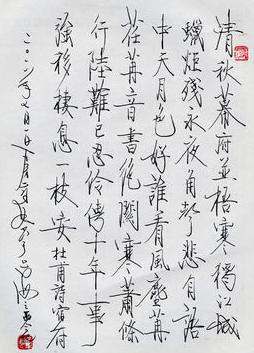 清秋幕府並梧寒獨江城
蠟炬殘永夜角聲悲自語
中天月色好誰看風塵苒
荏苒音書絕關寒蕭條
行陸難已忍伶俜十年事
強移棲息一枝安杜甫詩宿府
二〇一年七月一日